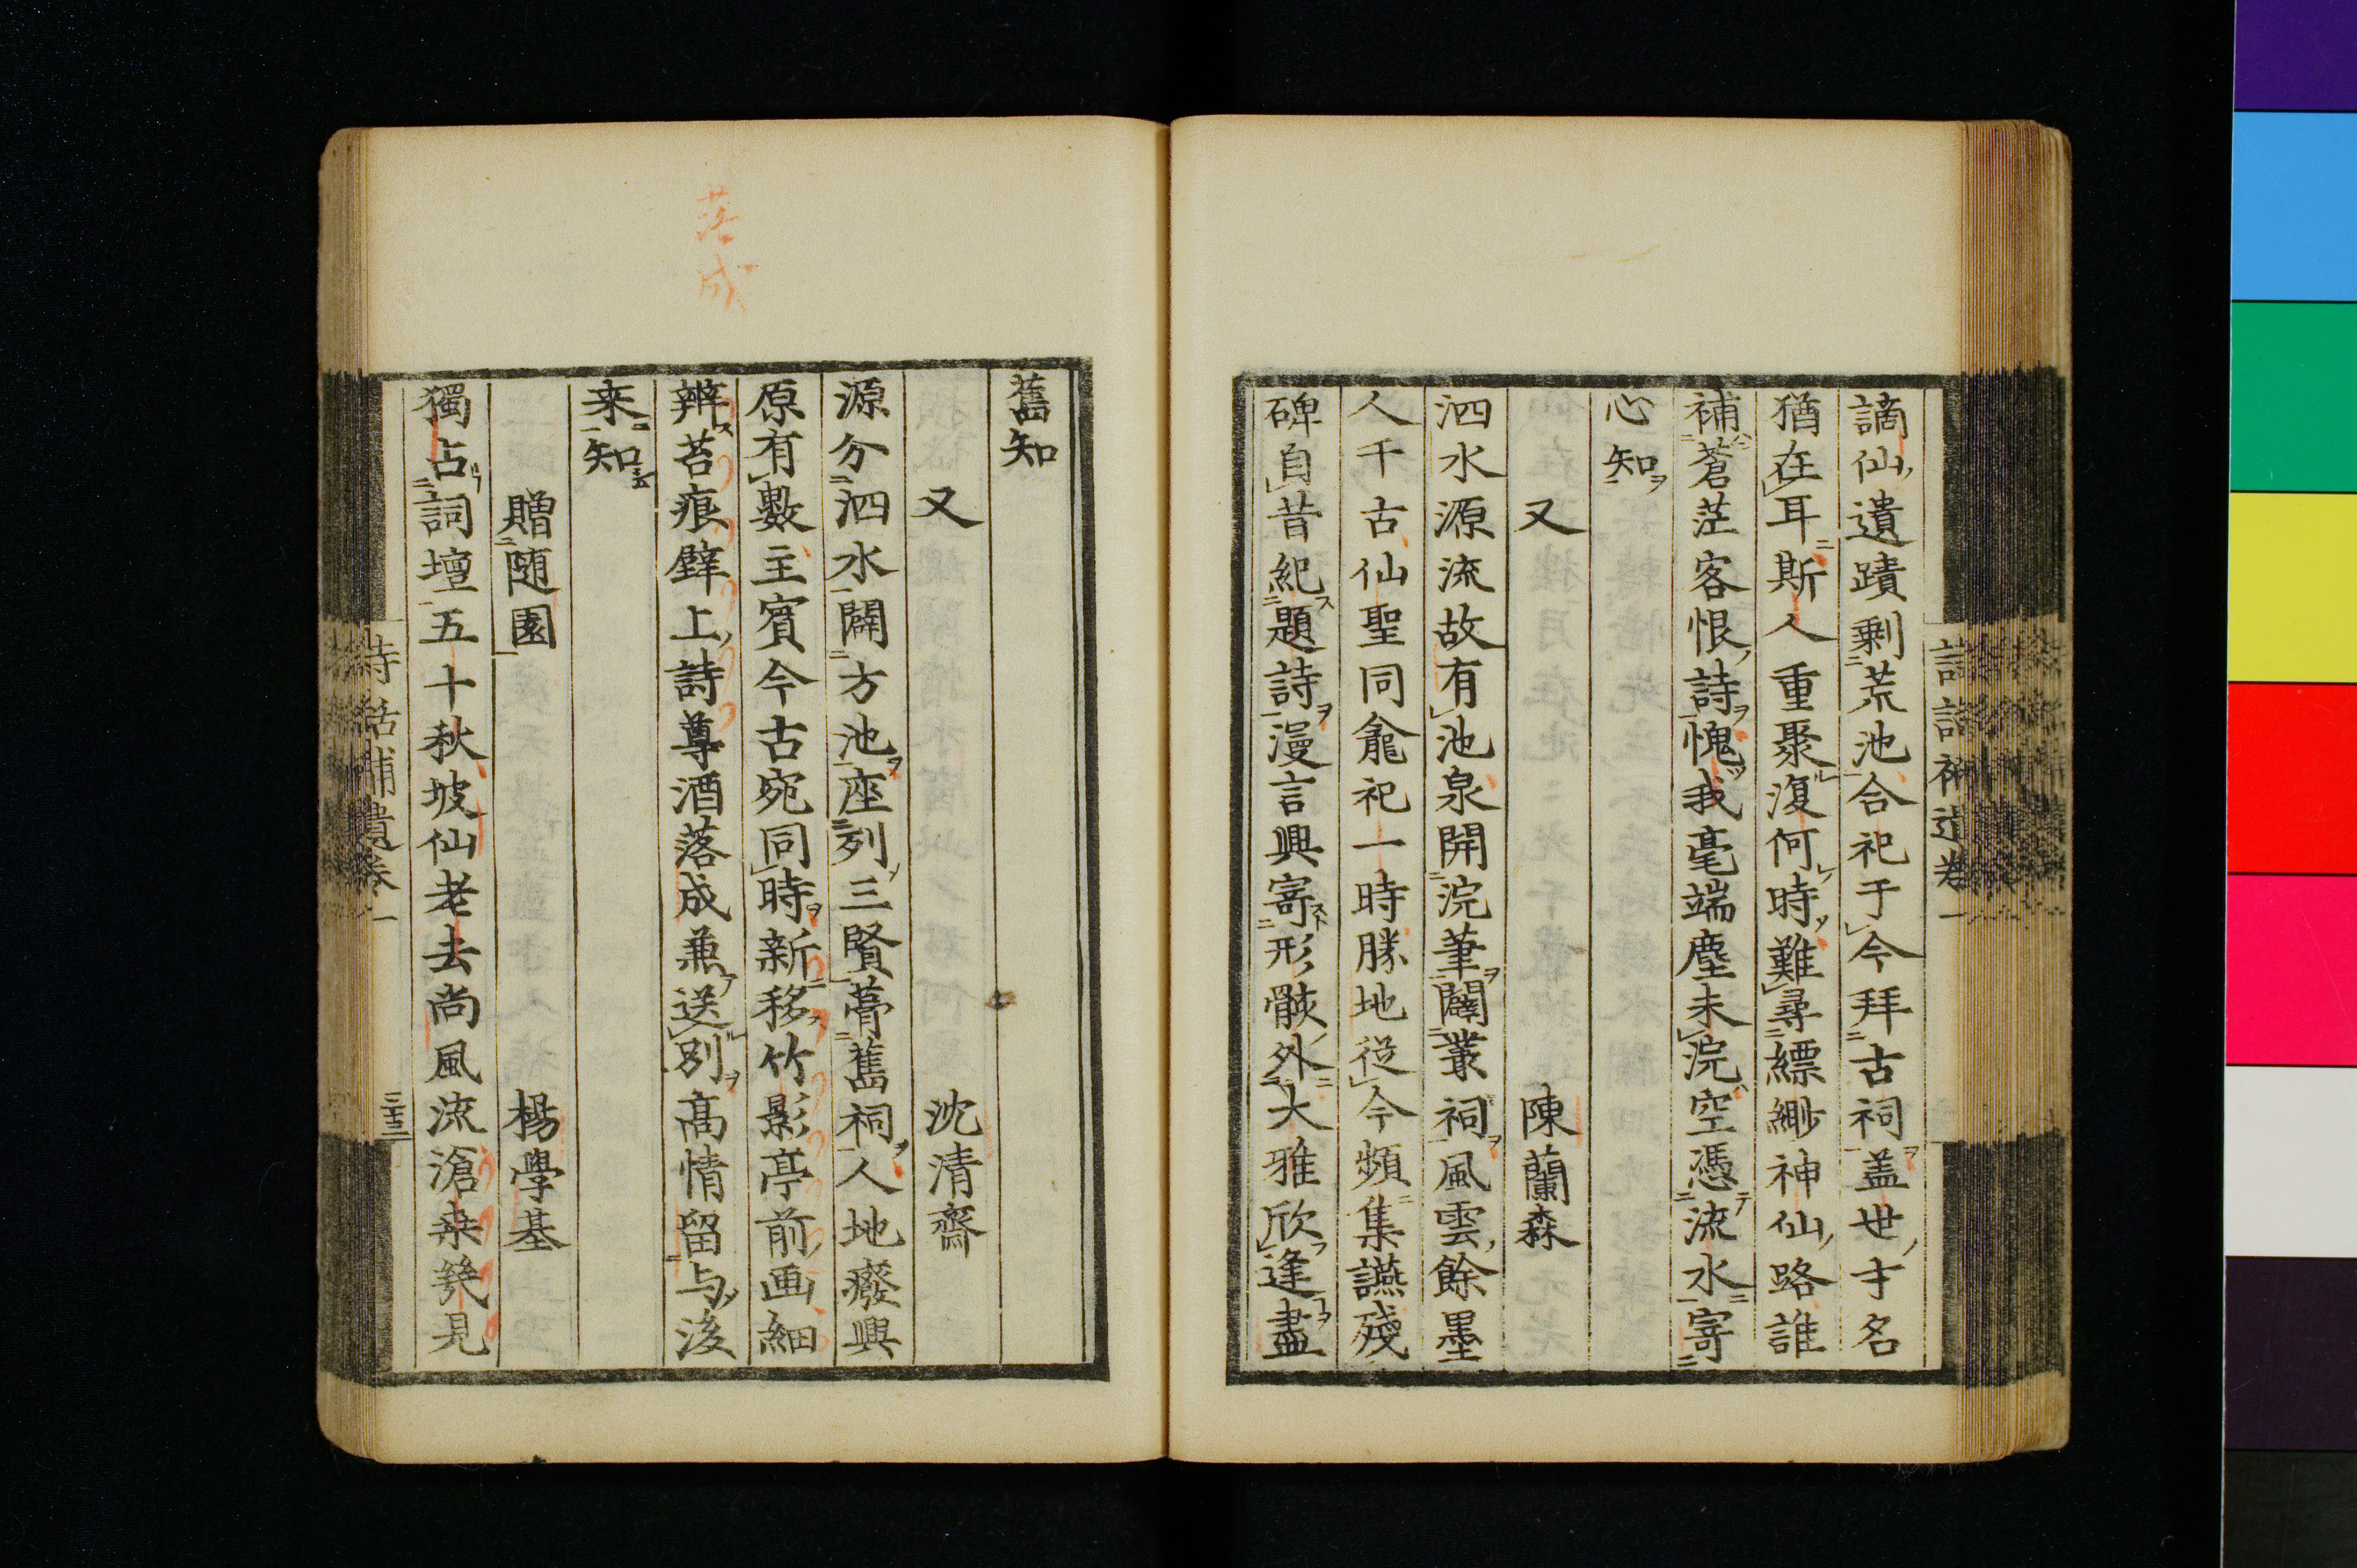 謫仙遺蹟剩荒池合祀于今拜古祠盖世才名
猶在耳斯人重聚復何時難尋縹緲神仙路誰
補蒼茫客恨詩愧我毫端塵未浣空憑流水寄
心知
又 陳蘭森
泗水源流故有池泉開浣筆闢叢祠風雲餘墨
人千古仙聖同龕祀一時勝地從今頻集讌殘
碑自昔紀題詩漫言興寄形骸外大雅欣逢盡
舊知
又 沈清齋
源分泗水闢方池座列三賢葺舊祠人地癈興
原有數主賓今古宛同時新移竹影亭前画細
辨苔痕壁上詩尊酒落成兼送別高情留与後
来知
贈随園 楊學基
獨占詞壇五十秋坡仙老去尚風流滄桒幾見
詩話補遺卷一
落成